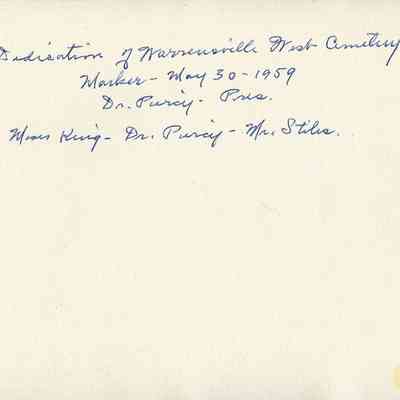 Dedication of Warrensville West Cemetery
Marker - May 30 - 1959
Dr. Piercy - Pres.
Moses King - Dr. Piercy - Mr. Stiles.